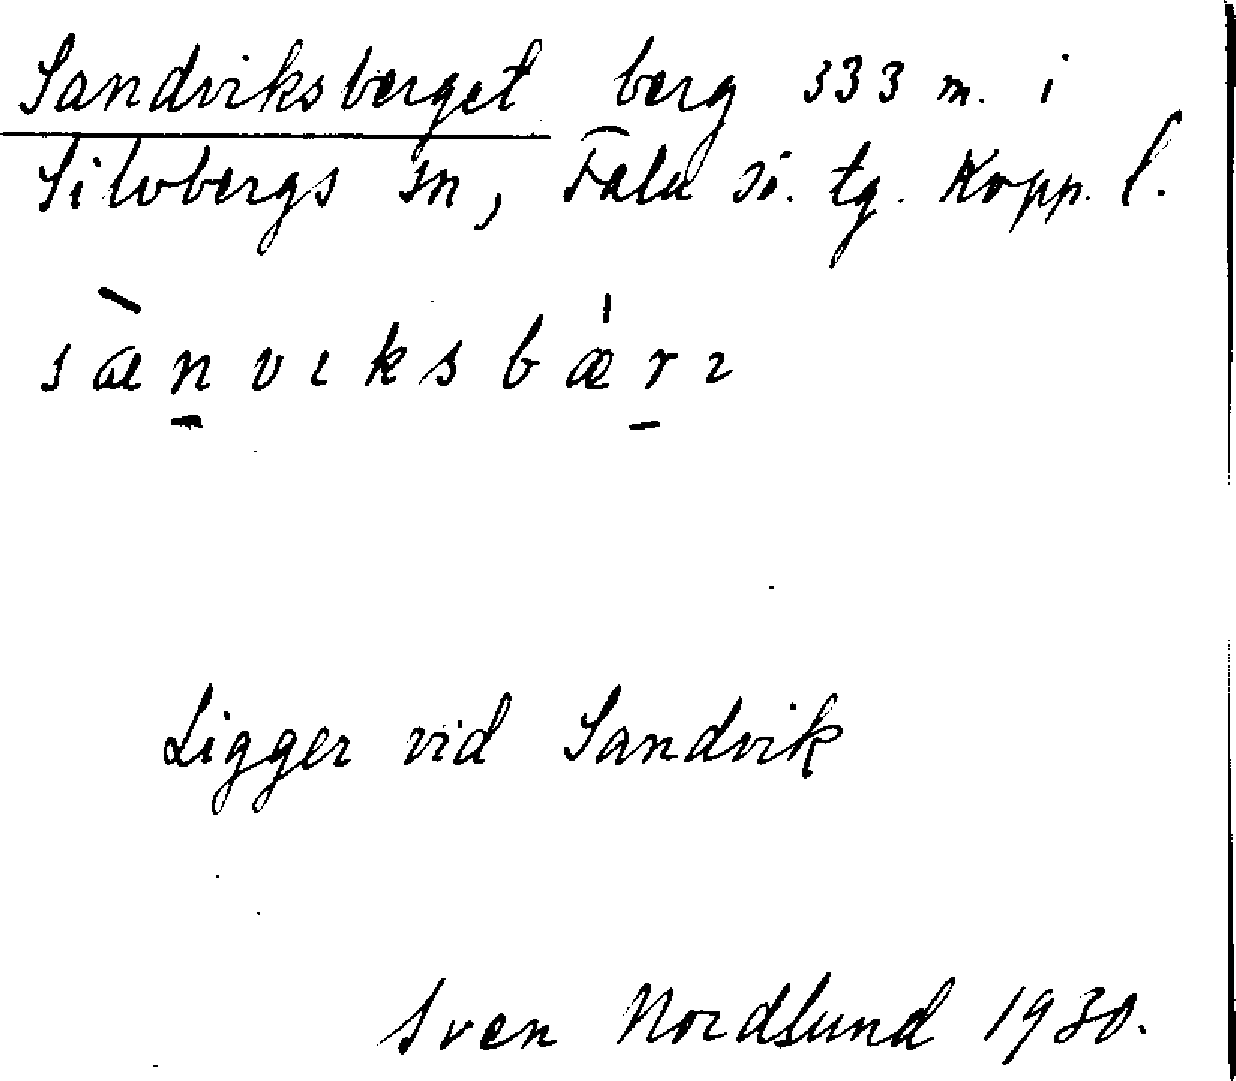 Sandviksberget berg 333 m. i
Silvbergs sn, Falu sö. tg. Kopp. l.
sæ̀n̠vɩksbæ̍r̠ɩ
Ligger vid Sandvik
Sven Nordlund 1930.